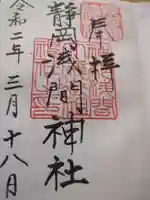 奉拝
静岡浅間神社
令和二年三月十八日